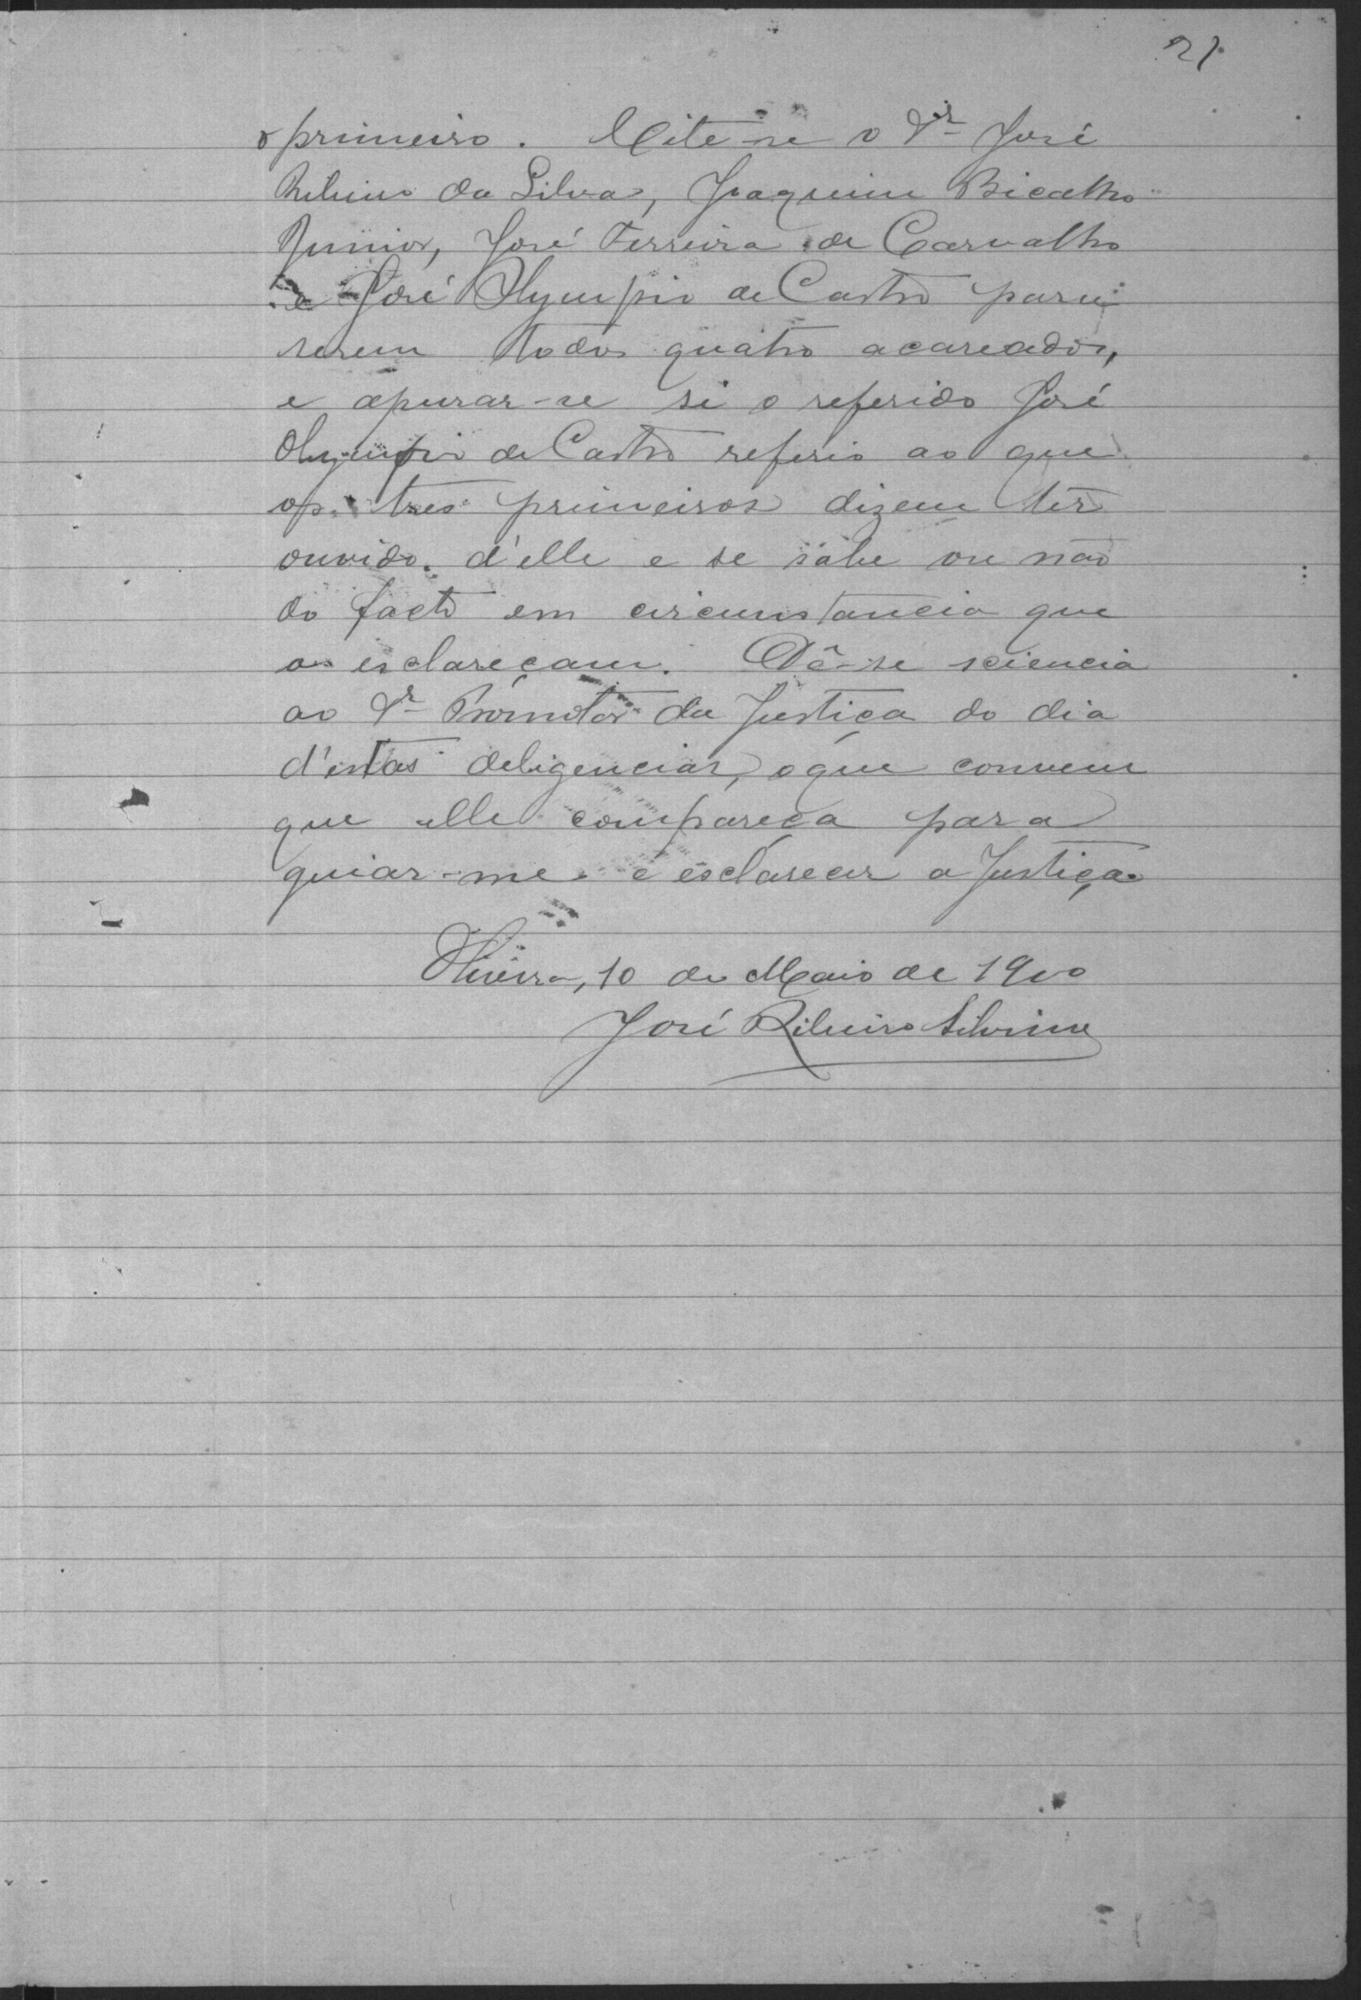 21
o primeiro. Cite-se o Dr José
Ribeiro da Silva, Joaquim Bicalho
Junior, José Ferreira de Carvalho
e José Olympio de Castro para
serem todos quatro acareados,
e apurar-se si o referido José
Olympio de Castro referio ao que
os tres primeiros dizem ter
ouvido d'elle e se sabe ou não
do facto em circumstancia que
os esclareçam. Dê-se sciencia
ao Dr Promotor da Justiça do dia
d'estas deligencias, o que convem
que elle compareça para
guiar-me e esclarecer a Justiça
Oliveira, 10 de Maio de 1900
José Ribeiro